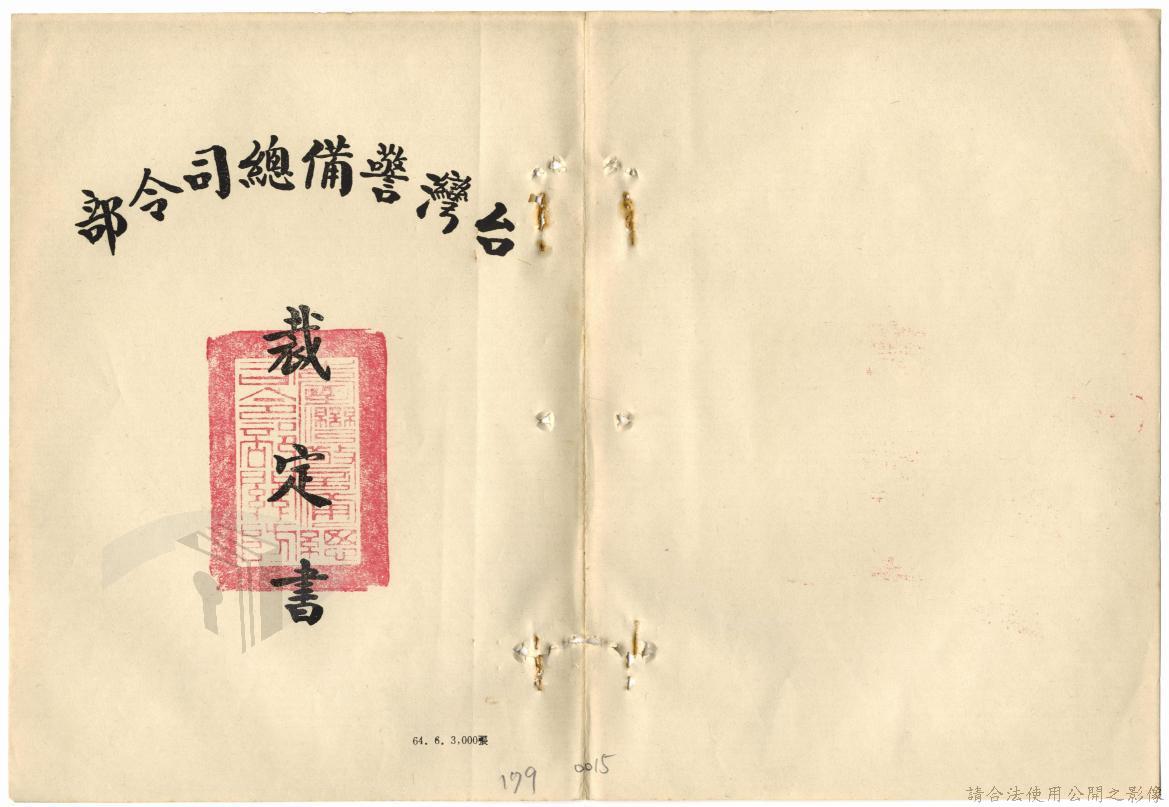 台灣警備總司令部
裁定書
64. 6. 3,000張
179
0015
請合法使用公開之影像